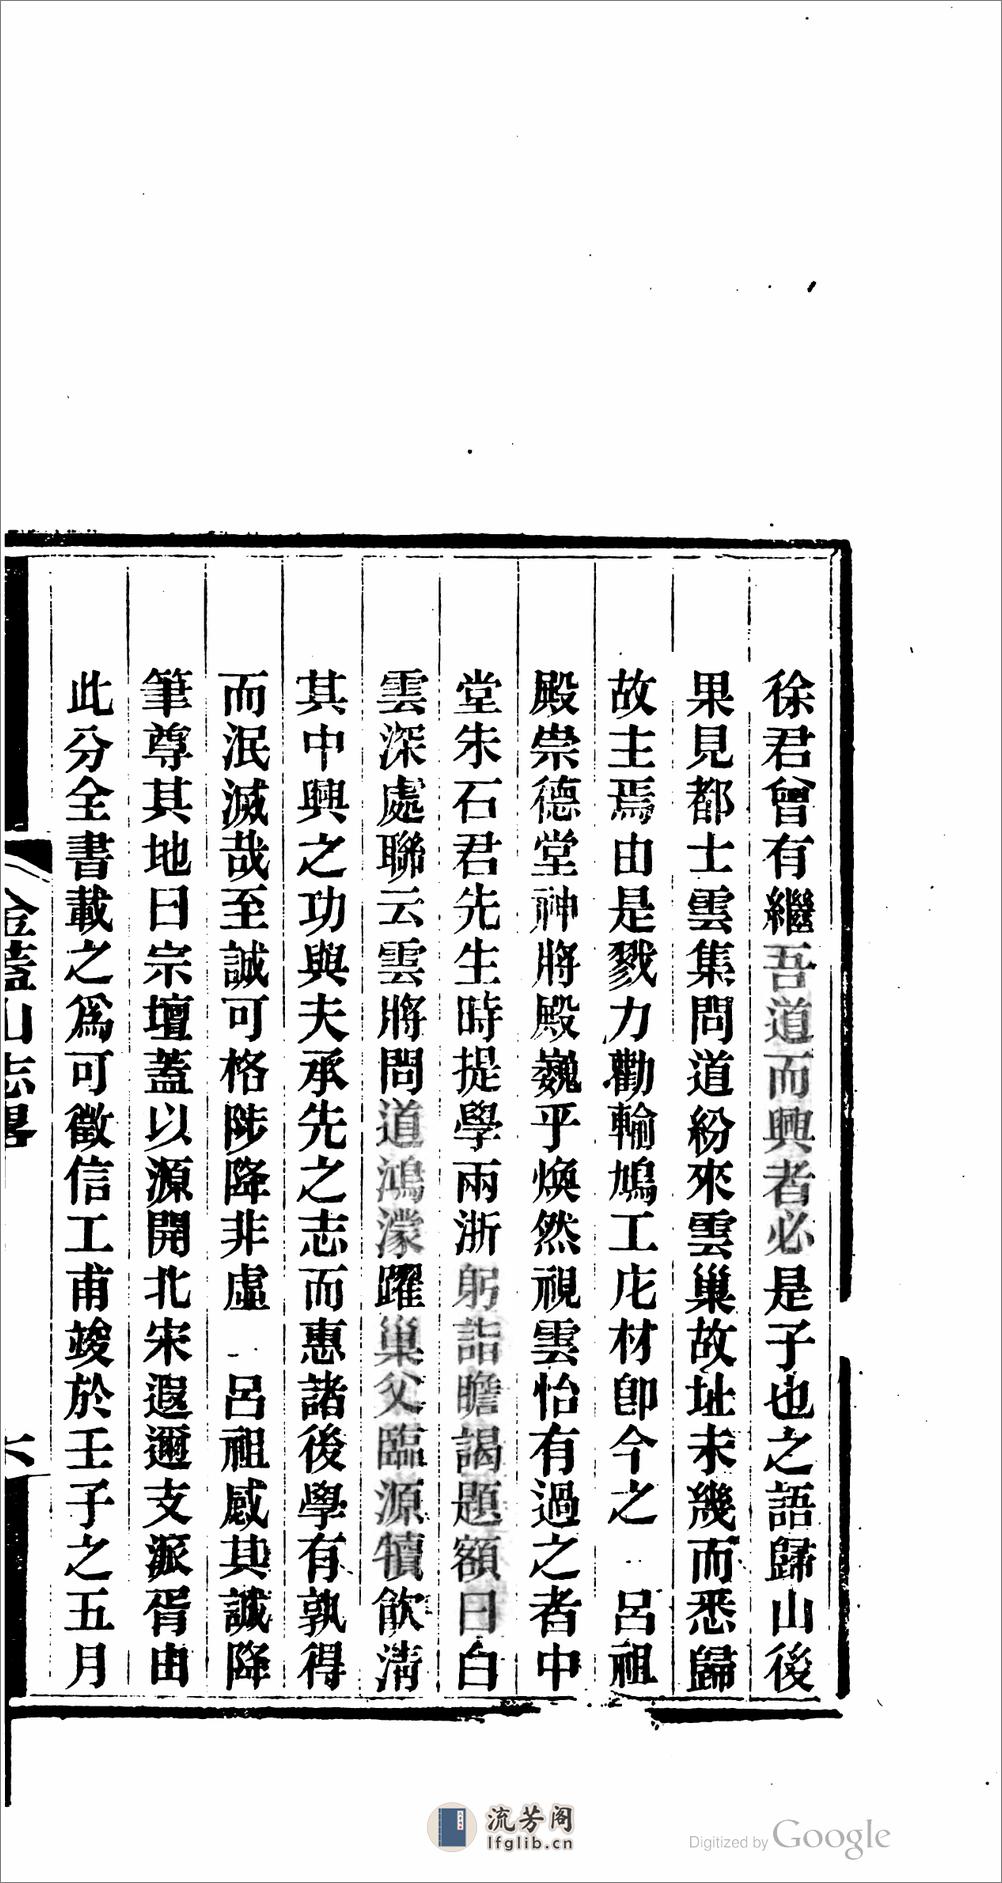 徐君曾有繼吾道而興者必是子也之語歸山後
果見都士雲集問道紛來雲巢故址未幾而悉歸
故主焉由是戮力勸輸鳩工庀材卽今之　呂祖
殿崇德堂神將殿巍乎煥然視雲怡有過之者中
堂朱石君先生時提學兩浙躬詣瞻謁題額曰白
雲深處聯云雲將問道鴻濛躍巢父臨源犢飲淸
其中興之功與夫承先之志而惠諸後學有孰得
而泯滅哉至誠可格陟降非虛　呂祖感其誠降
筆尊其地曰宗壇蓋以源開北宋遐邇支派胥由
此分全書載之爲可徵信工甫竣於壬子之五月
金蓋山志畧
六
流芳阁
lfglib.cn
Digitized by Google